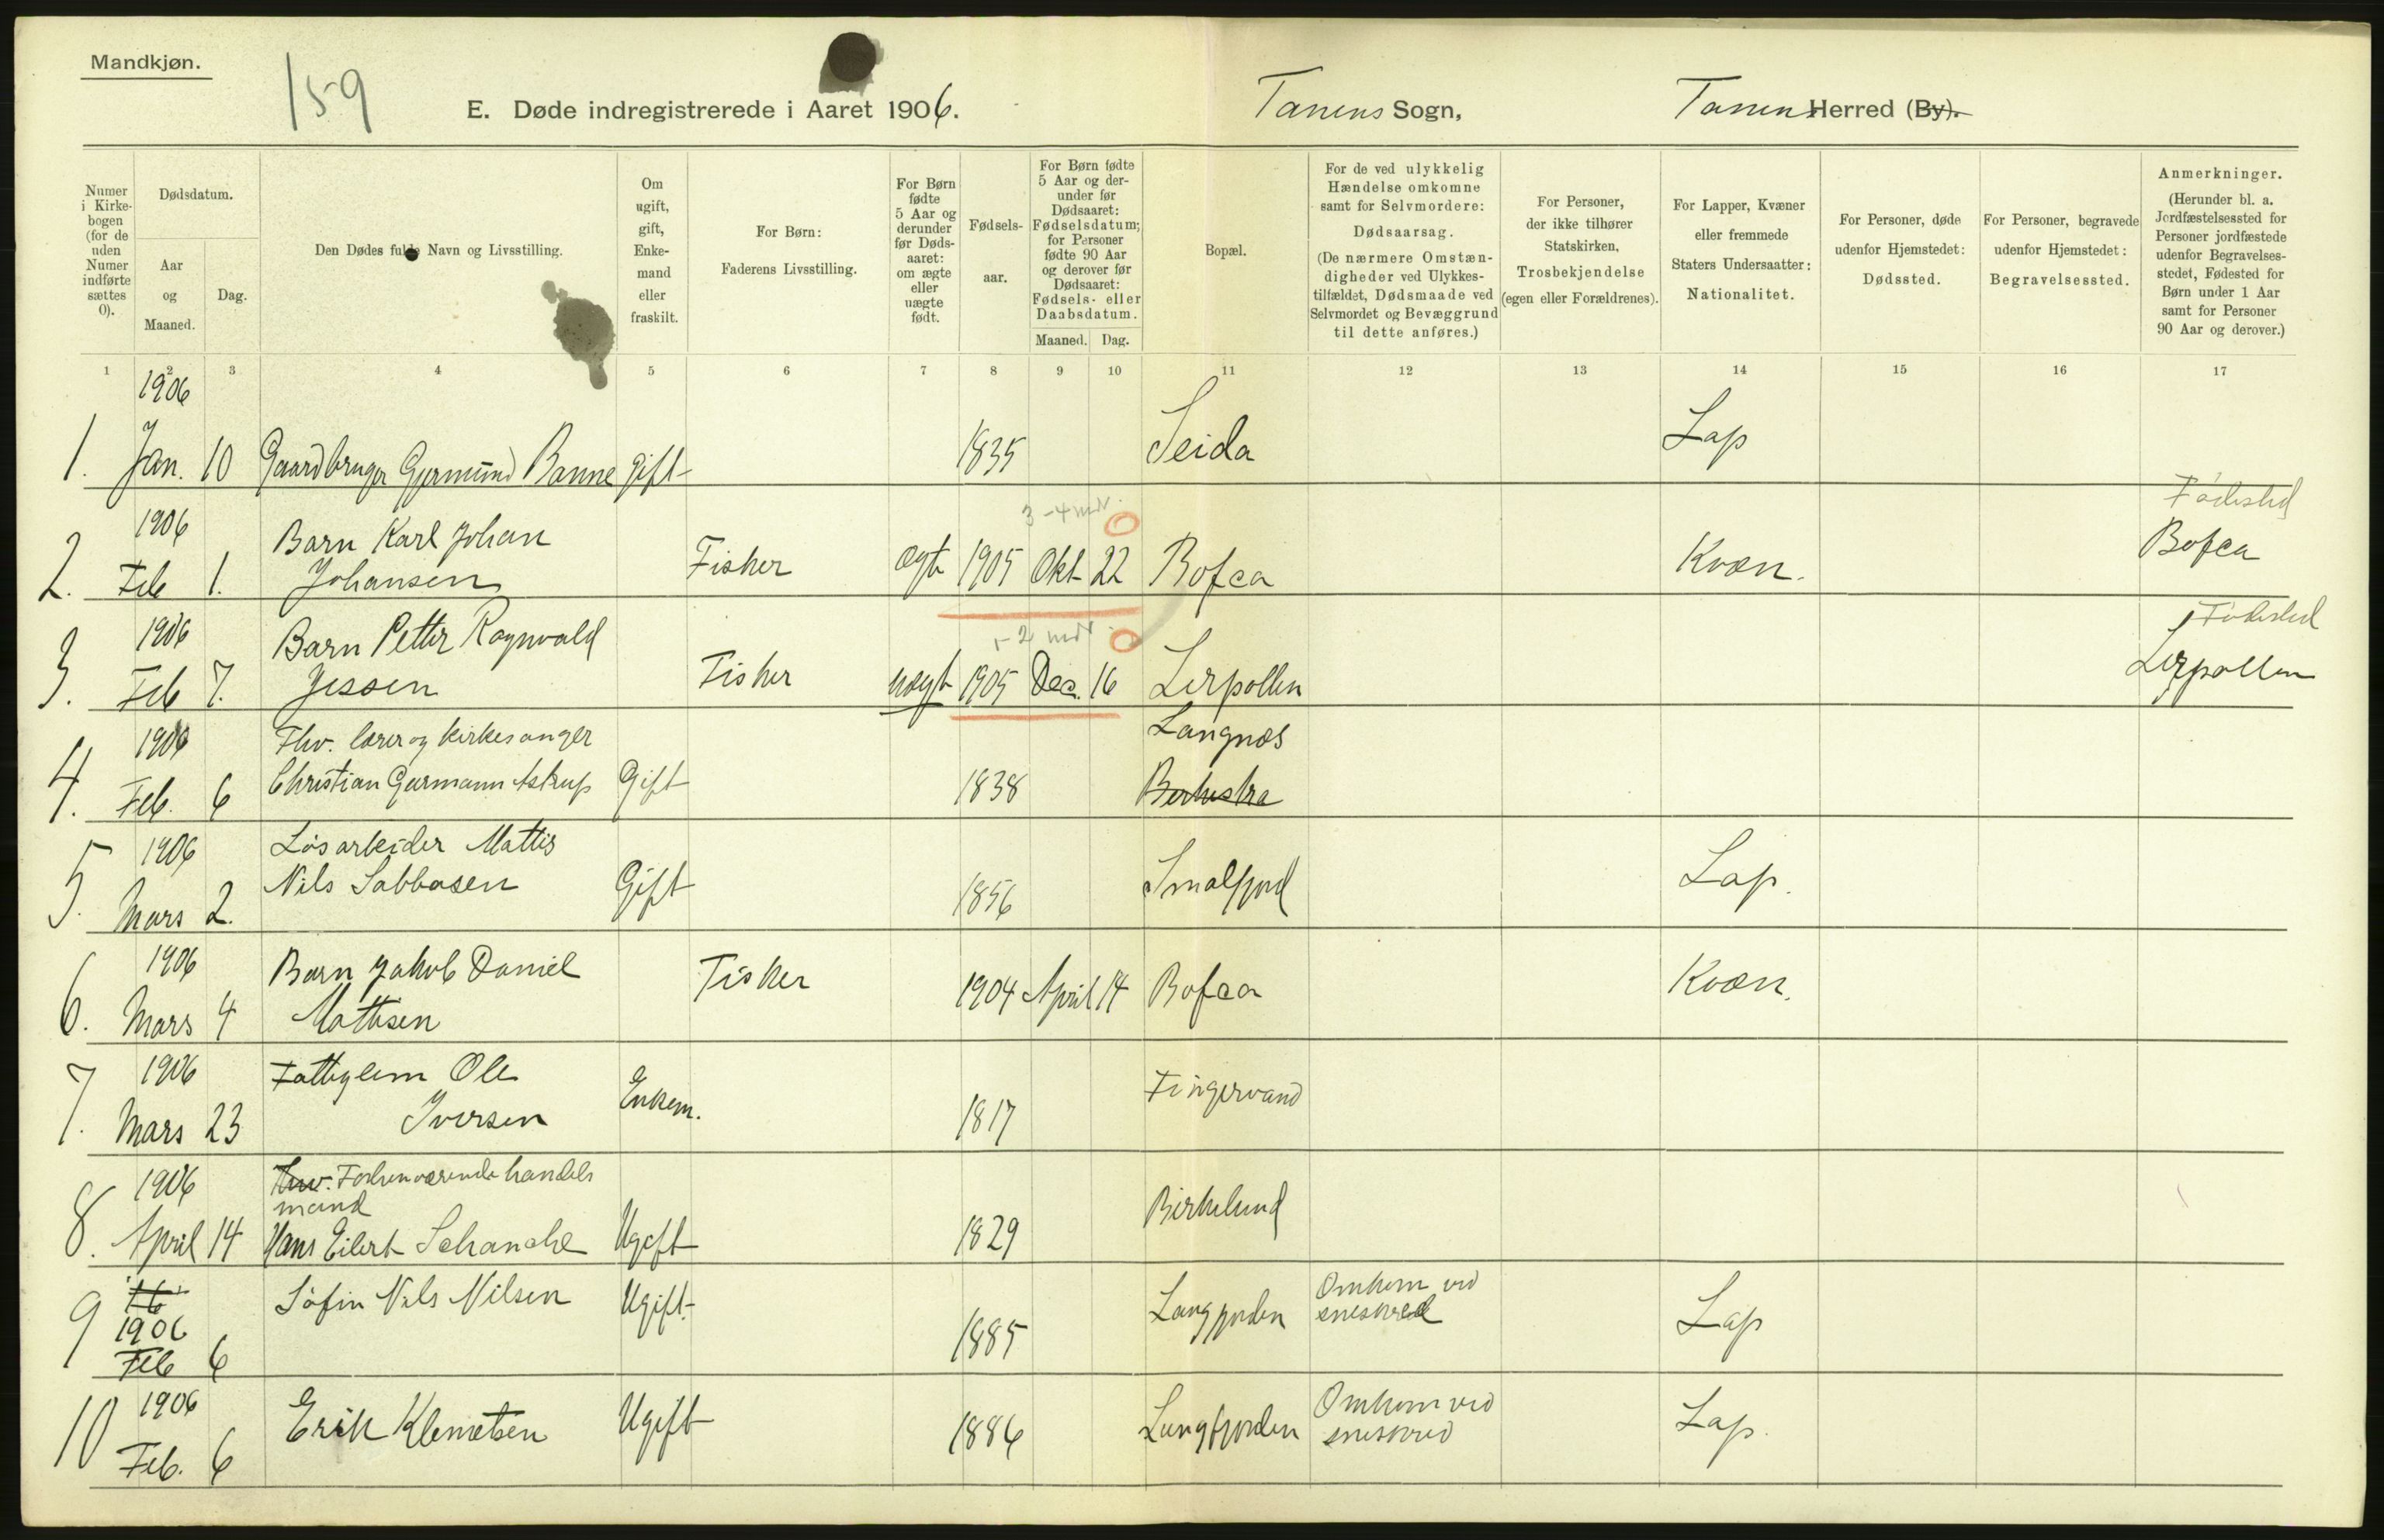 Mandkjøn.
159
E. Døde indregistrerede i Aaret 1906.
Tanens Sogn,
Tanen Herred (By).
Numer i Kirkebogen (for de uden Numer indførte sættes 0).
Dødsdatum.
Aar og Maaned.
Dag.
Den Dødes fulde Navn og Livsstilling.
Om ugift, gift, Enkemand eller fraskilt.
For Børn:
Faderens Livsstilling.
For Børn fødte 5 Aar og derunder før Dødsaaret: om ægte eller uægte født.
Fødselsaar.
For Børn fødte 5 Aar og derunder før Dødsaaret: Fødselsdatum; for Personer fødte 90 Aar og derover før Dødsaaret: Fødsels- eller Daabsdatum.
Maaned. Dag.
Bopæl.
For de ved ulykkelig Hændelse omkomne samt for Selvmordere:
Dødsaarsag.
(De nærmere Omstændigheder ved Ulykkestilfældet, Dødsmaade ved Selvmordet og Bevæggrund til dette anføres.)
For Personer, der ikke tilhører Statskirken,
Trosbekjendelse
(egen eller Forældrenes).
For Lapper, Kvæner eller fremmede Staters Undersaatter:
Nationalitet.
For Personer, døde udenfor Hjemstedet:
Dødssted.
For Personer, begravede udenfor Hjemstedet:
Begravelsessted.
Anmerkninger.
(Herunder bl. a. Jordfæstelsessted for Personer jordfæstede udenfor Begravelsesstedet, Fødested for Børn under 1 Aar samt for Personer 90 Aar og derover.)
1 2 3 4 5 6 7 8 9 10 11 12 13 14 15 16 17
1906
1. Jan. 10 Gaardbruger Gjermund Banne gift 1835 Seida Lap
1906 Barn Karl Johan 3-4 mdr. 0 Fødested
2. Feb 1. Johansen Fisker ægt 1905 Okt 22 Bofca Kvæn. Bofca
1906 Barn Petter Ragnvald 1-2 mdr. 0 Fødested
3. Feb 7. Jessen Fisker uægt 1905 Dec. 16 Lerpollen Lerpollen
1906 Fhv. lærer og kirkesanger Langnæs
4. Feb. 6 Christian Garmann Astrup Gift 1838
1906 Løsarbeider Mattis
5. Mars 2. Nils Sabbasen Gift 1856 Smalfjord Lap.
1906 Barn Jakob Daniel Fisker
6. Mars 4 Mathisen 1904 April 14 Bofca Kvæn.
1906 Fattiglem Ole
7. Mars 23 Iversen Enkem. 1817 Fingervand
1906 Fhv. Forhenværende handels
mand
8. April 14 Hans Eilert Schanche Ugift 1829 Birkelund
9 16 Søfin Nils Nilsen Ugift. Omkom ved
1906 1885 Langfjorden sneskred Lap
Feb 6
1906 Omkom ved
10 Feb. 6 Erik Klemetsen Ugift 1886 Langfjorden sneskred Lap.